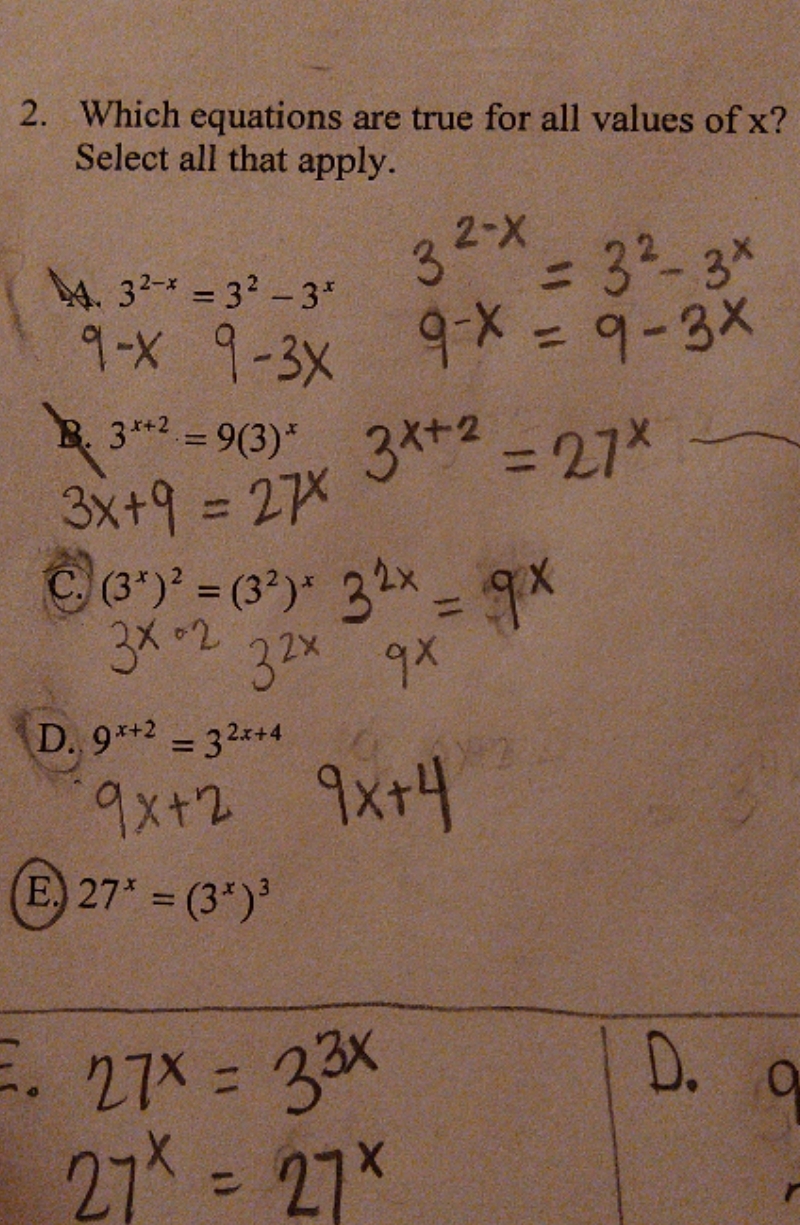 2. Which equations are true for all values of x?
Select all that apply.
3^{2-x} = 3² - 3ˣ
A. 3^{2-x} = 3² – 3ˣ
9-x 9-3x 9^{-x} = 9-3ˣ
B. 3^{x+2} = 9(3)ˣ 3^{x+2} = 27ˣ
3x+9 = 27ˣ
C. (3ˣ)² = (3²)ˣ 3^{2x} = 9ˣ
3ˣ·2 3^{2x} 9ˣ
D. 9^{x+2} = 3^{2x+4}
9x+2 9x+4
E. 27ˣ = (3ˣ)³
E. 27ˣ = 3^{3x} D. 9
27ˣ = 27ˣ